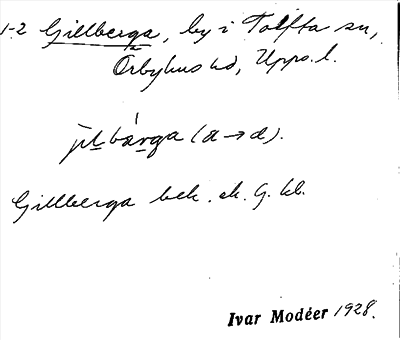 1-2 Gillberga, by i Tolfta sn,
Örbyhus hd, Upps. l.
jɩlbárga (a→a).
Gillberga bek. ek. G. kl.
Ivar Modéer 1928.